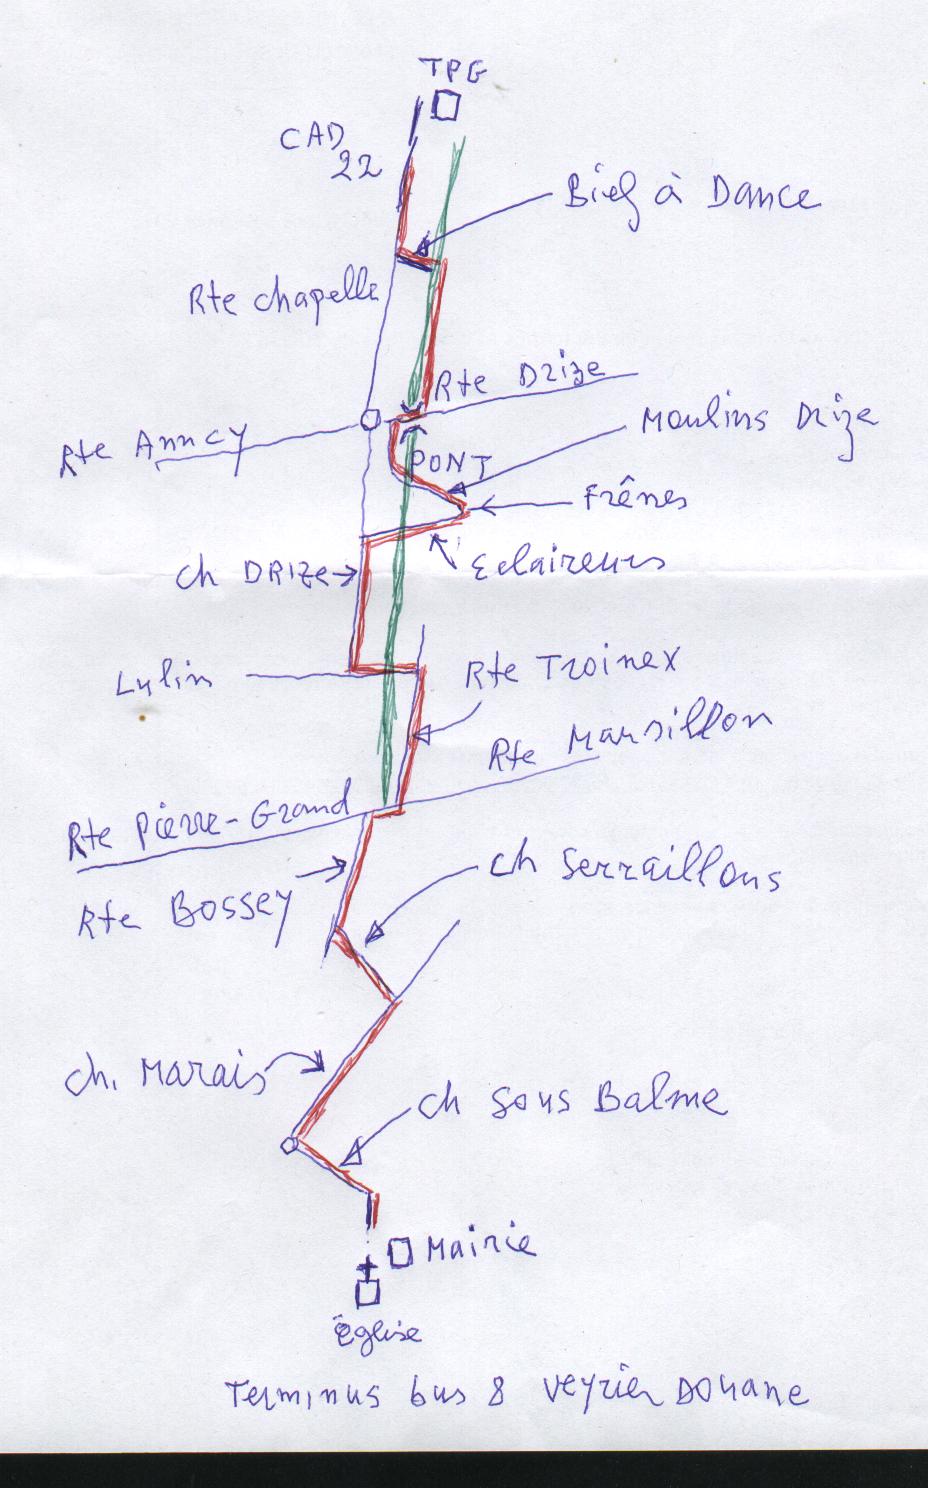 TPG
CAD
22
Bief à Dance
Rte chapelle
Rte Drize
Moulins Drize
Rte Anncy
PONT
Frênes
Eclaireurs
ch DRIZE
Lulin
Rte Troinex
Rte Marsillon
Rte Pierre-Grand
ch Serraillons
Rte BOSSEY
ch. Marais
ch sous Balme
Mairie
Église
Terminus bus 8 Veyrier DOUANE